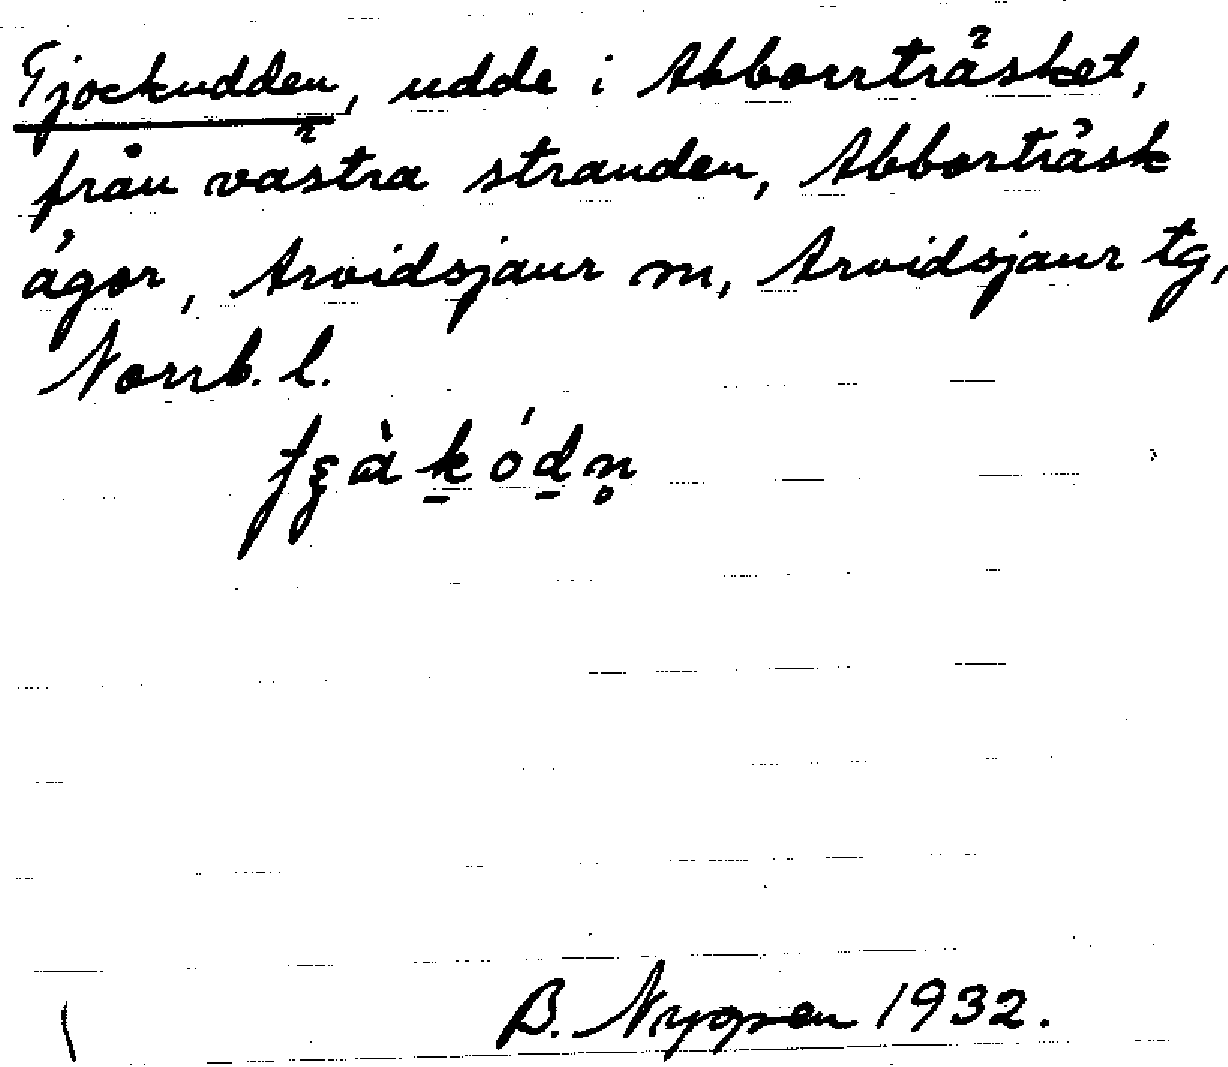 Tjockudden, udde i Abborrträsket,
från västra stranden, Abborträsk
ägor, Arvidsjaur sn, Arvidsjaur tg,
Norrb. l.
B. Nygren 1932.